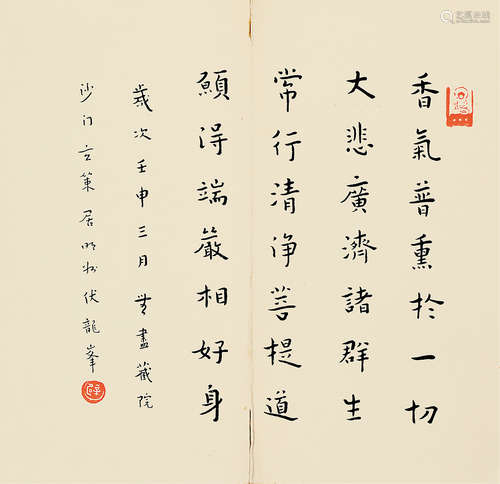 香氣普熏於一切
大悲廣濟諸群生
常行清淨菩提道
願得端嚴相好身
歲次壬申三月無盡藏院
沙門玄策居明州伏龍峯